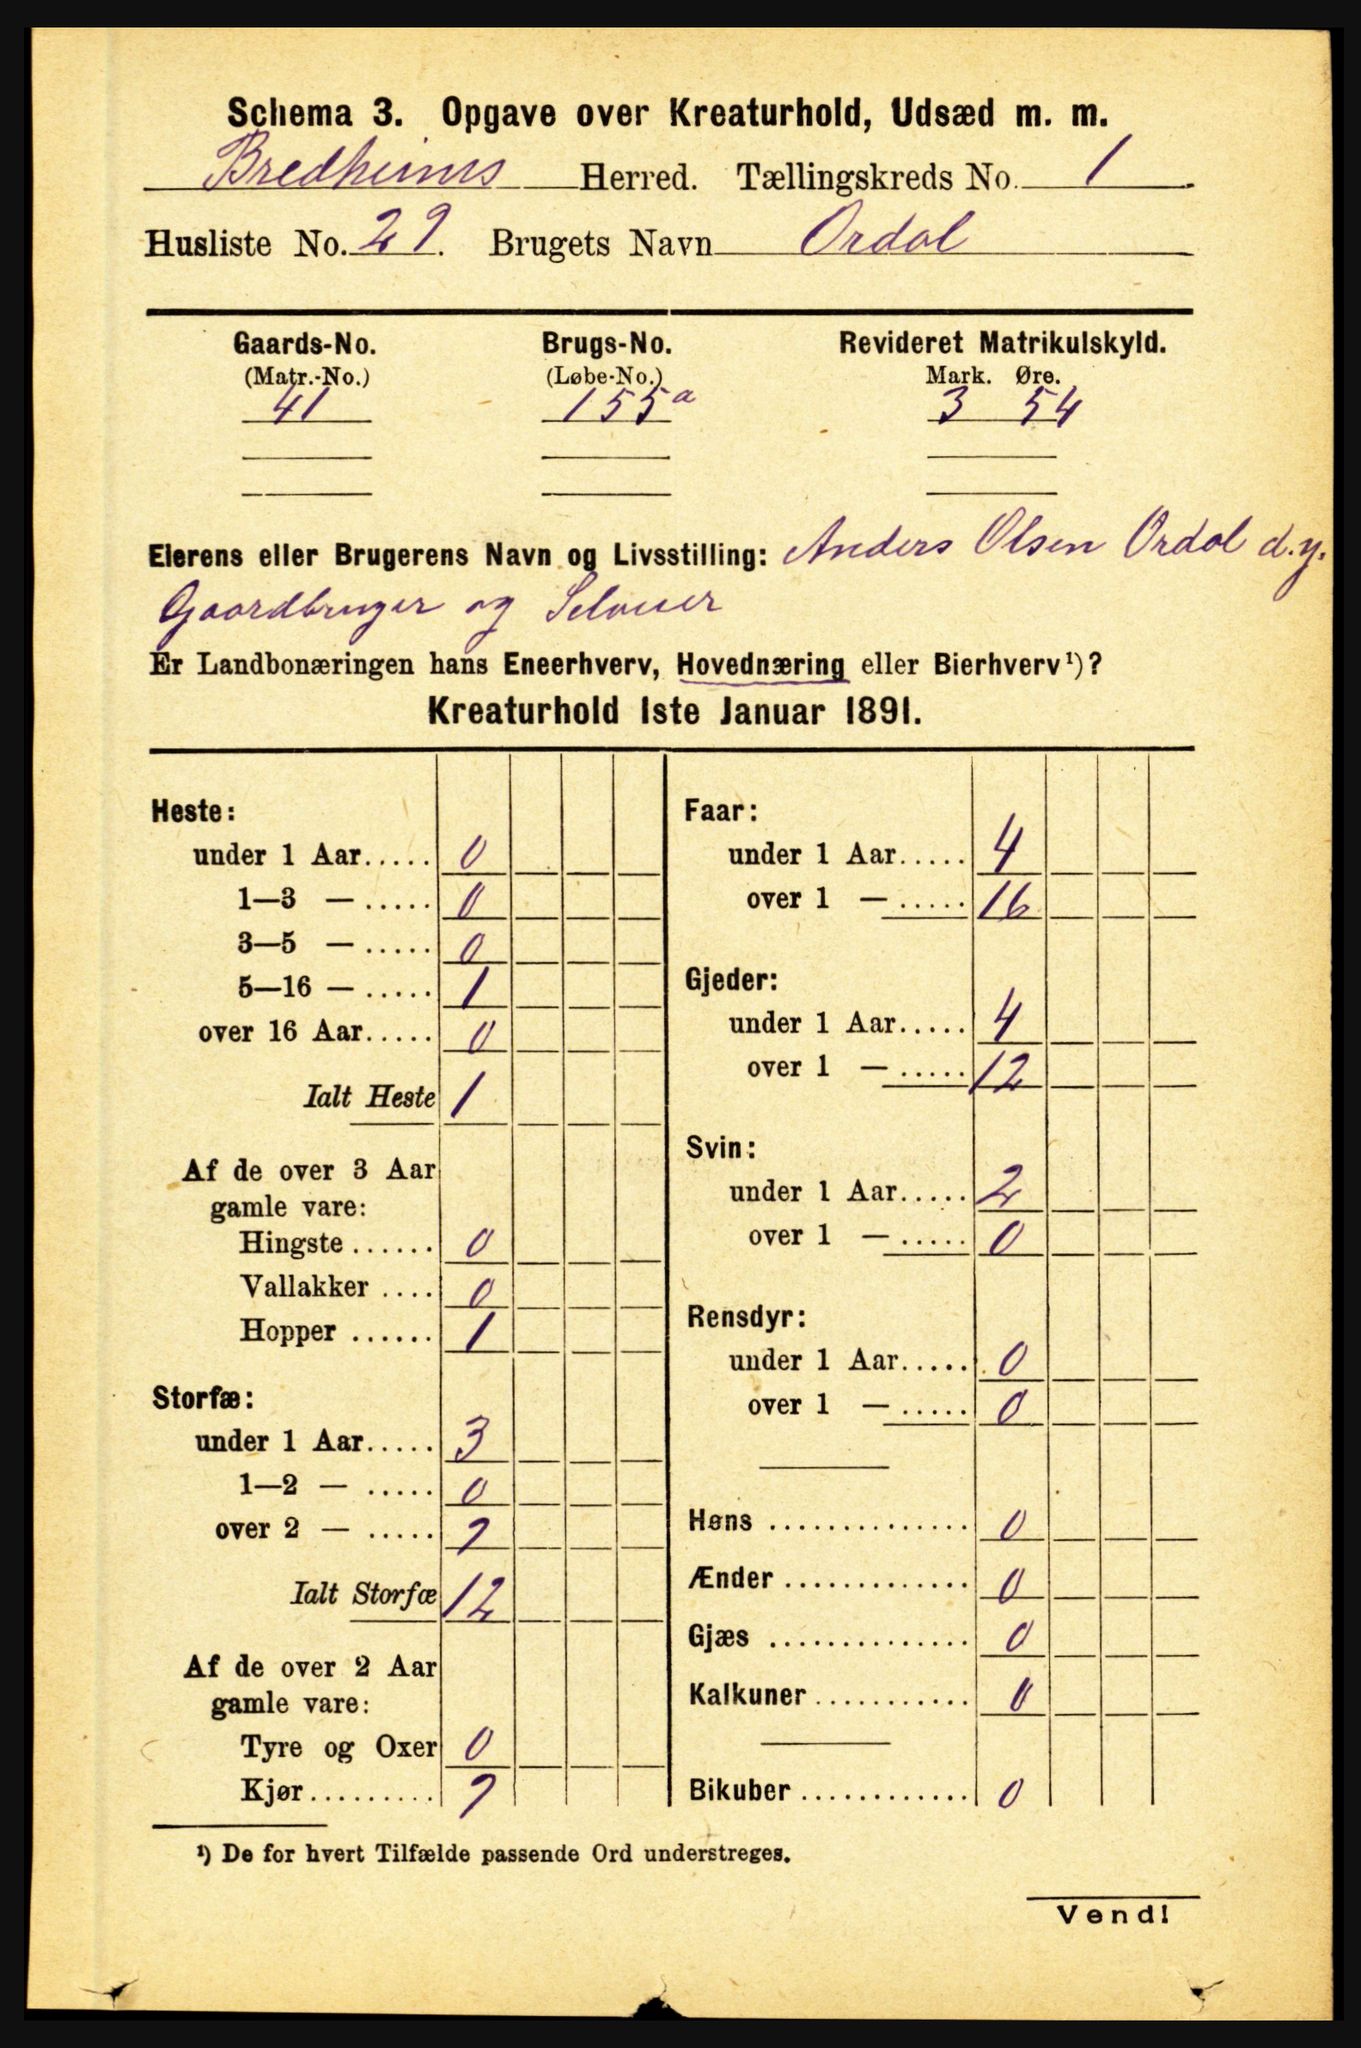 Schema 3. Opgave over Kreaturhold, Udsæd m. m.
Bredheims Herred. Tællingskreds No. 1
Husliste No. 29. Brugets Navn Ordal
Gaards-No. Brugs-No. Revideret Matrikulskyld.
(Matr.-No.) (Løbe-No.) Mark. Øre.
41 155a 3 54
Eierens eller Brugerens Navn og Livsstilling: Anders Olsen Ordal d.y.
Gaardbruger og Selveier
Er Landbonæringen hans Eneerhverv, Hovednæring eller Bierhverv¹)?
Kreaturhold 1ste Januar 1891.
Heste:
under 1 Aar..... 0
1—3 — ..... 0
3—5 — ..... 0
5—16 — ..... 1
over 16 Aar..... 0
Ialt Heste 1
Af de over 3 Aar
gamle vare:
Hingste ...... 0
Vallakker .... 0
Hopper ...... 1
Storfæ:
under 1 Aar..... 3
1—2 — ..... 0
over 2 — ..... 9
Ialt Storfæ 12
Af de over 2 Aar
gamle vare:
Tyre og Oxer 0
Kjør......... 9
Faar:
under 1 Aar..... 4
over 1 — ..... 16
Gjeder:
under 1 Aar..... 4
over 1 — ..... 12
Svin:
under 1 Aar..... 2
over 1 — ..... 0
Rensdyr:
under 1 Aar..... 0
over 1 — ..... 0
Høns .............. 0
Ænder ............. 0
Gjæs .............. 0
Kalkuner........... 0
Bikuber ............ 0
¹) De for hvert Tilfælde passende Ord understreges.
Vend!